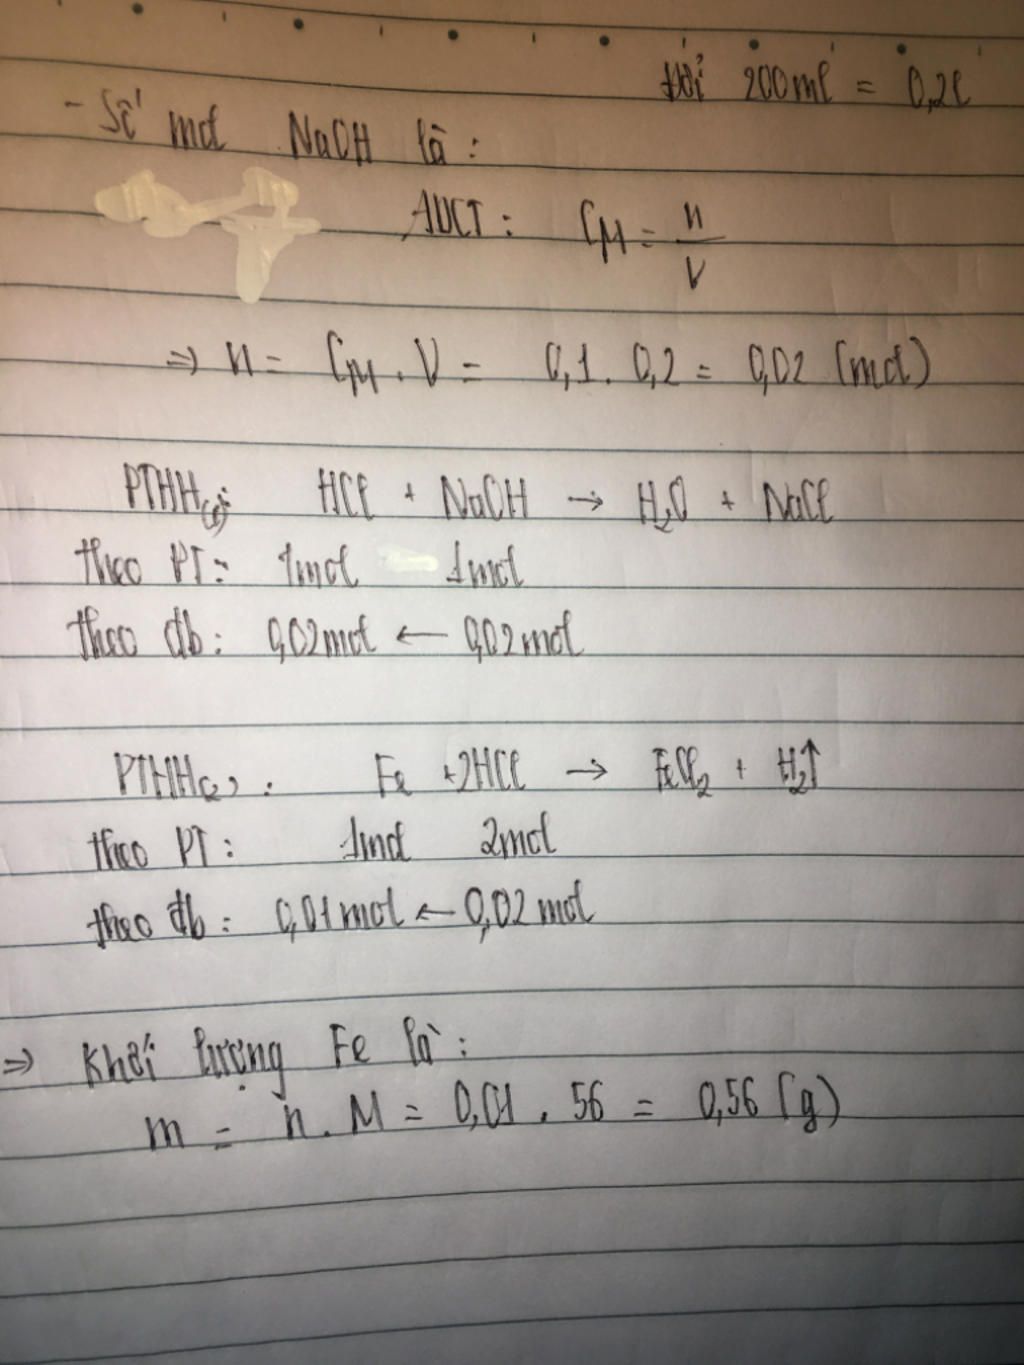 Đổi 200ml = 0,2l
- Số mol NaOH là :
ADCT : CM = n/V
=> n = CM . V = 0,1 . 0,2 = 0,02 (mol)
PTHH(1): HCl + NaOH → H₂O + NaCl
theo PT : 1mol 1mol
theo đb : 0,02mol ← 0,02mol
PTHH(2) : Fe + 2HCl → FeCl₂ + H₂↑
theo PT : 1mol 2mol
theo đb : 0,01mol ← 0,02mol
=> Khối lượng Fe là :
m = n . M = 0,01 . 56 = 0,56 (g)